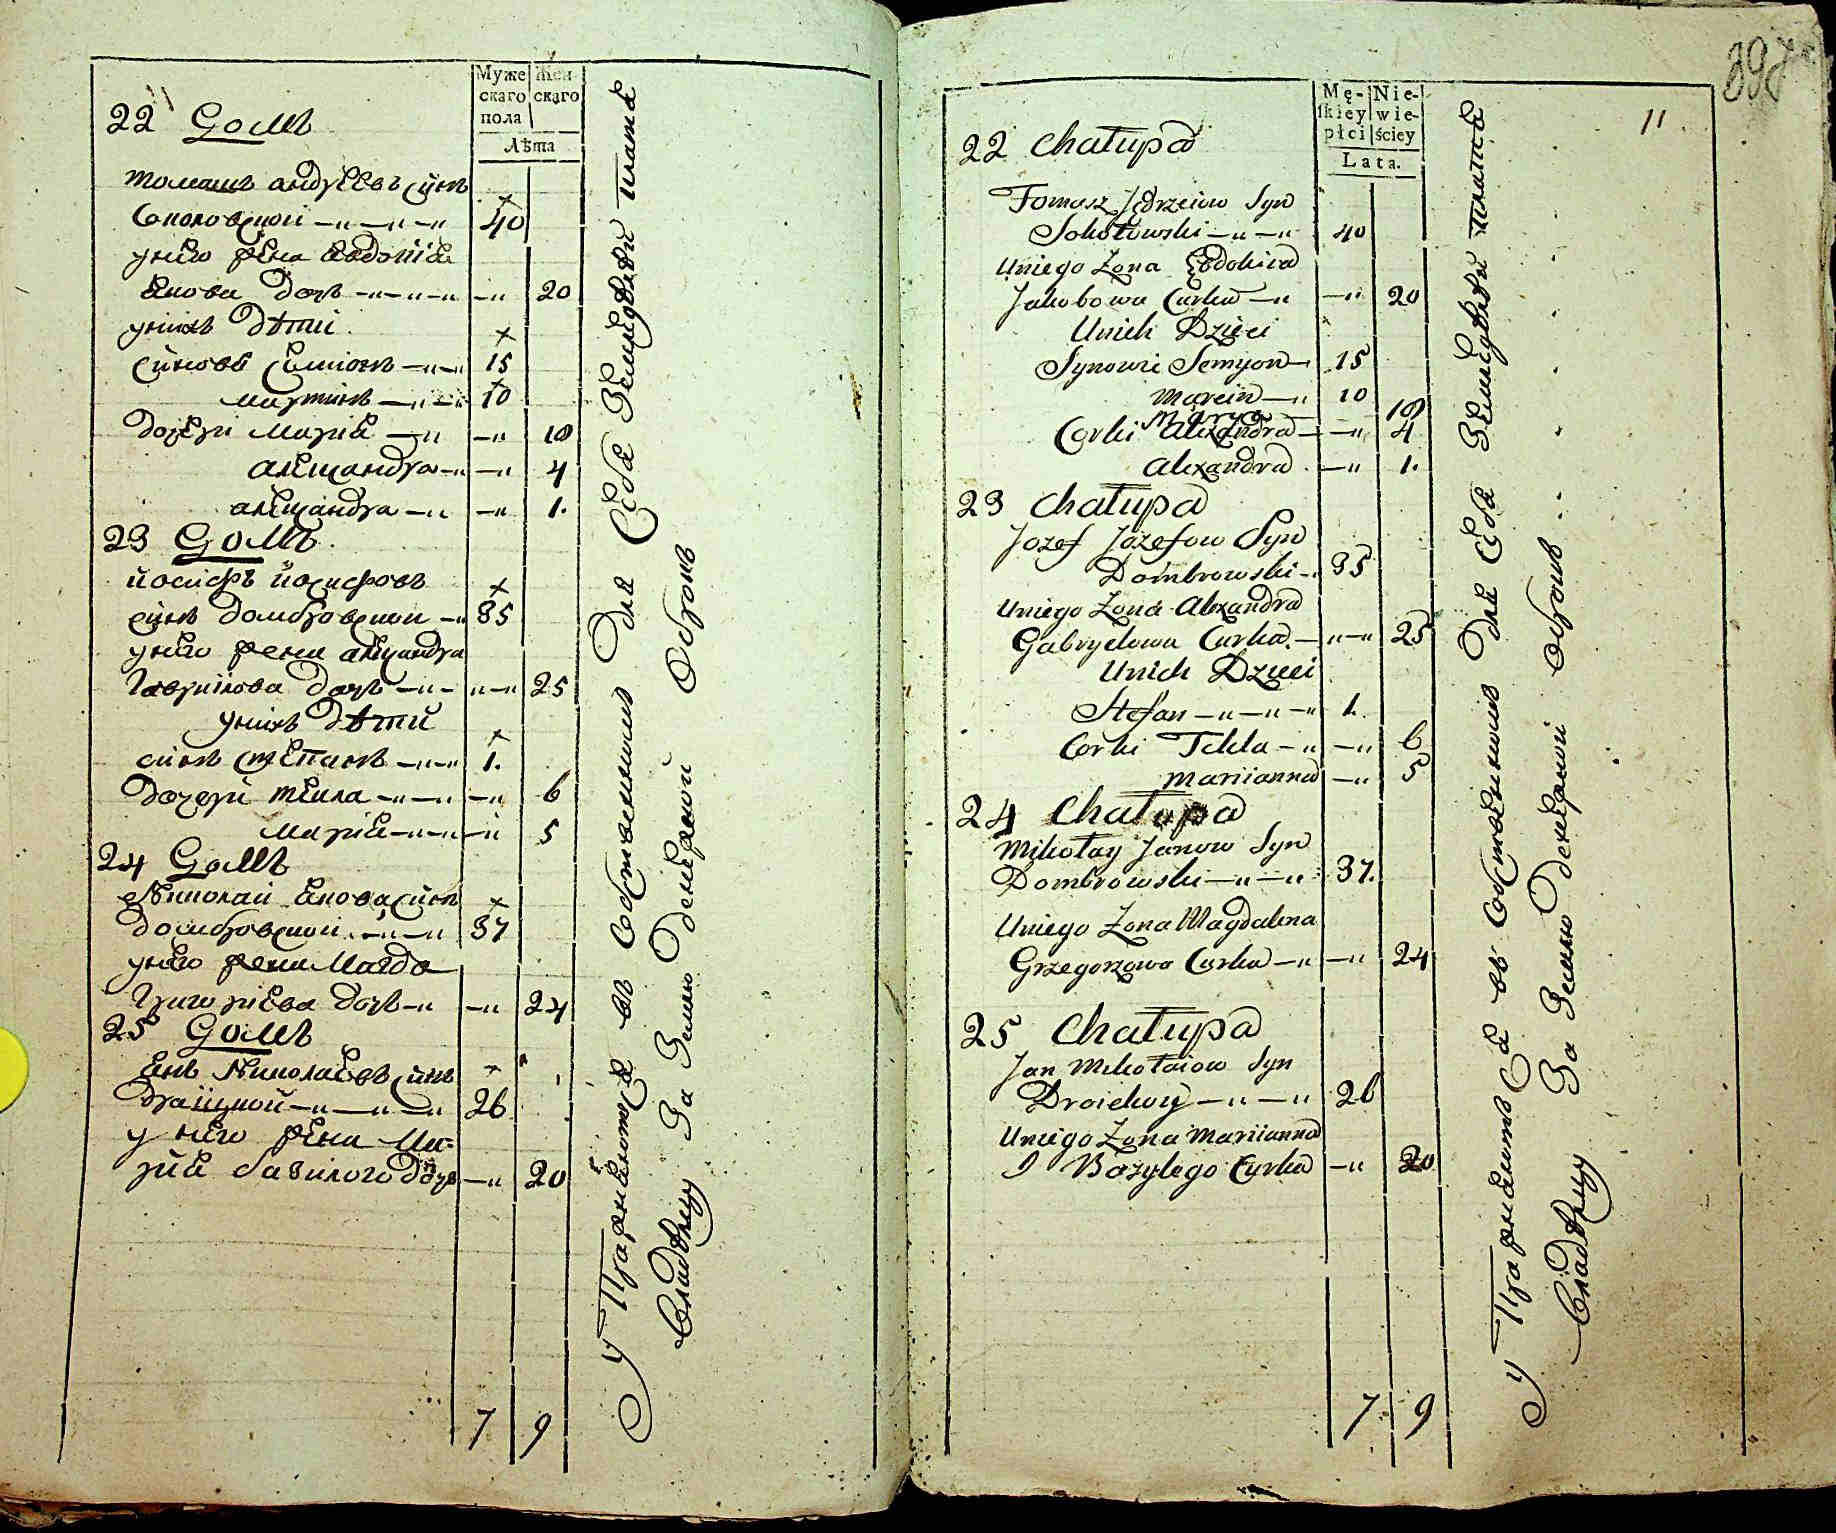 Муже
скаго
пола
Жен
скаго
Лѣта
22 Домъ
томашъ андреевъ синъ
Соколовской 40
унего жена Евдокия
Янова дочь 20
унихъ дѣти
Синовя Семионъ 15
мартинъ 10
дочери мария 10
александра 4
александра 1.
23 Домъ
йосифъ йосифовъ
синъ домбровской 35
унего жена александра
Гаврилова дочь 25
унихъ дѣти
синъ степанъ 1.
дочери текла 6
мария 5
24 Домъ
Николай Янова синъ
домбровской 37
унего жена Магда
Григориева дочь 24
25 Домъ
Янъ Николаевъ синъ
драицкой 26
у него жена Ма=
рия базилого дочь 20
7 9
Упражняются въ собственнимъ для себя земледѣлии платя
владѣлцу за землю денежной оброкъ
397
11.
Mę-
skiey
płci
Nie-
wie-
ściey
Lata.
22 Chałupa
Tomasz Jędrzeiow Syn
Sokołowski 40
Uniego Zona Ewdokia
Jakobowa Curka 20
Unich Dzieci
Synowie Semyon 15
Marcin 10
Marya 10
Corki Alexandra 4
Alexandra 1.
23 Chałupa
Jozef Jozefow Syn
Dombrowski 35
Uniego Zona Alexandra
Gabryelowa Curka 25
Unich Dzieci
Stefan 1.
Corki Tekla 6
Mariianna 5
24 Chałupa
Mikołay Janow Syn
Dombrowski 37.
Uniego Zona Magdalena
Grzegorzowa Curka 24
25 Chałupa
Jan Mikołaiow Syn
26
Uniego Zona Mariianna
Bazylego Curka 20
7. 9
Упражняются въ собственнимъ для себя земледѣлии платя
владѣлцу за землю денежной оброкъ